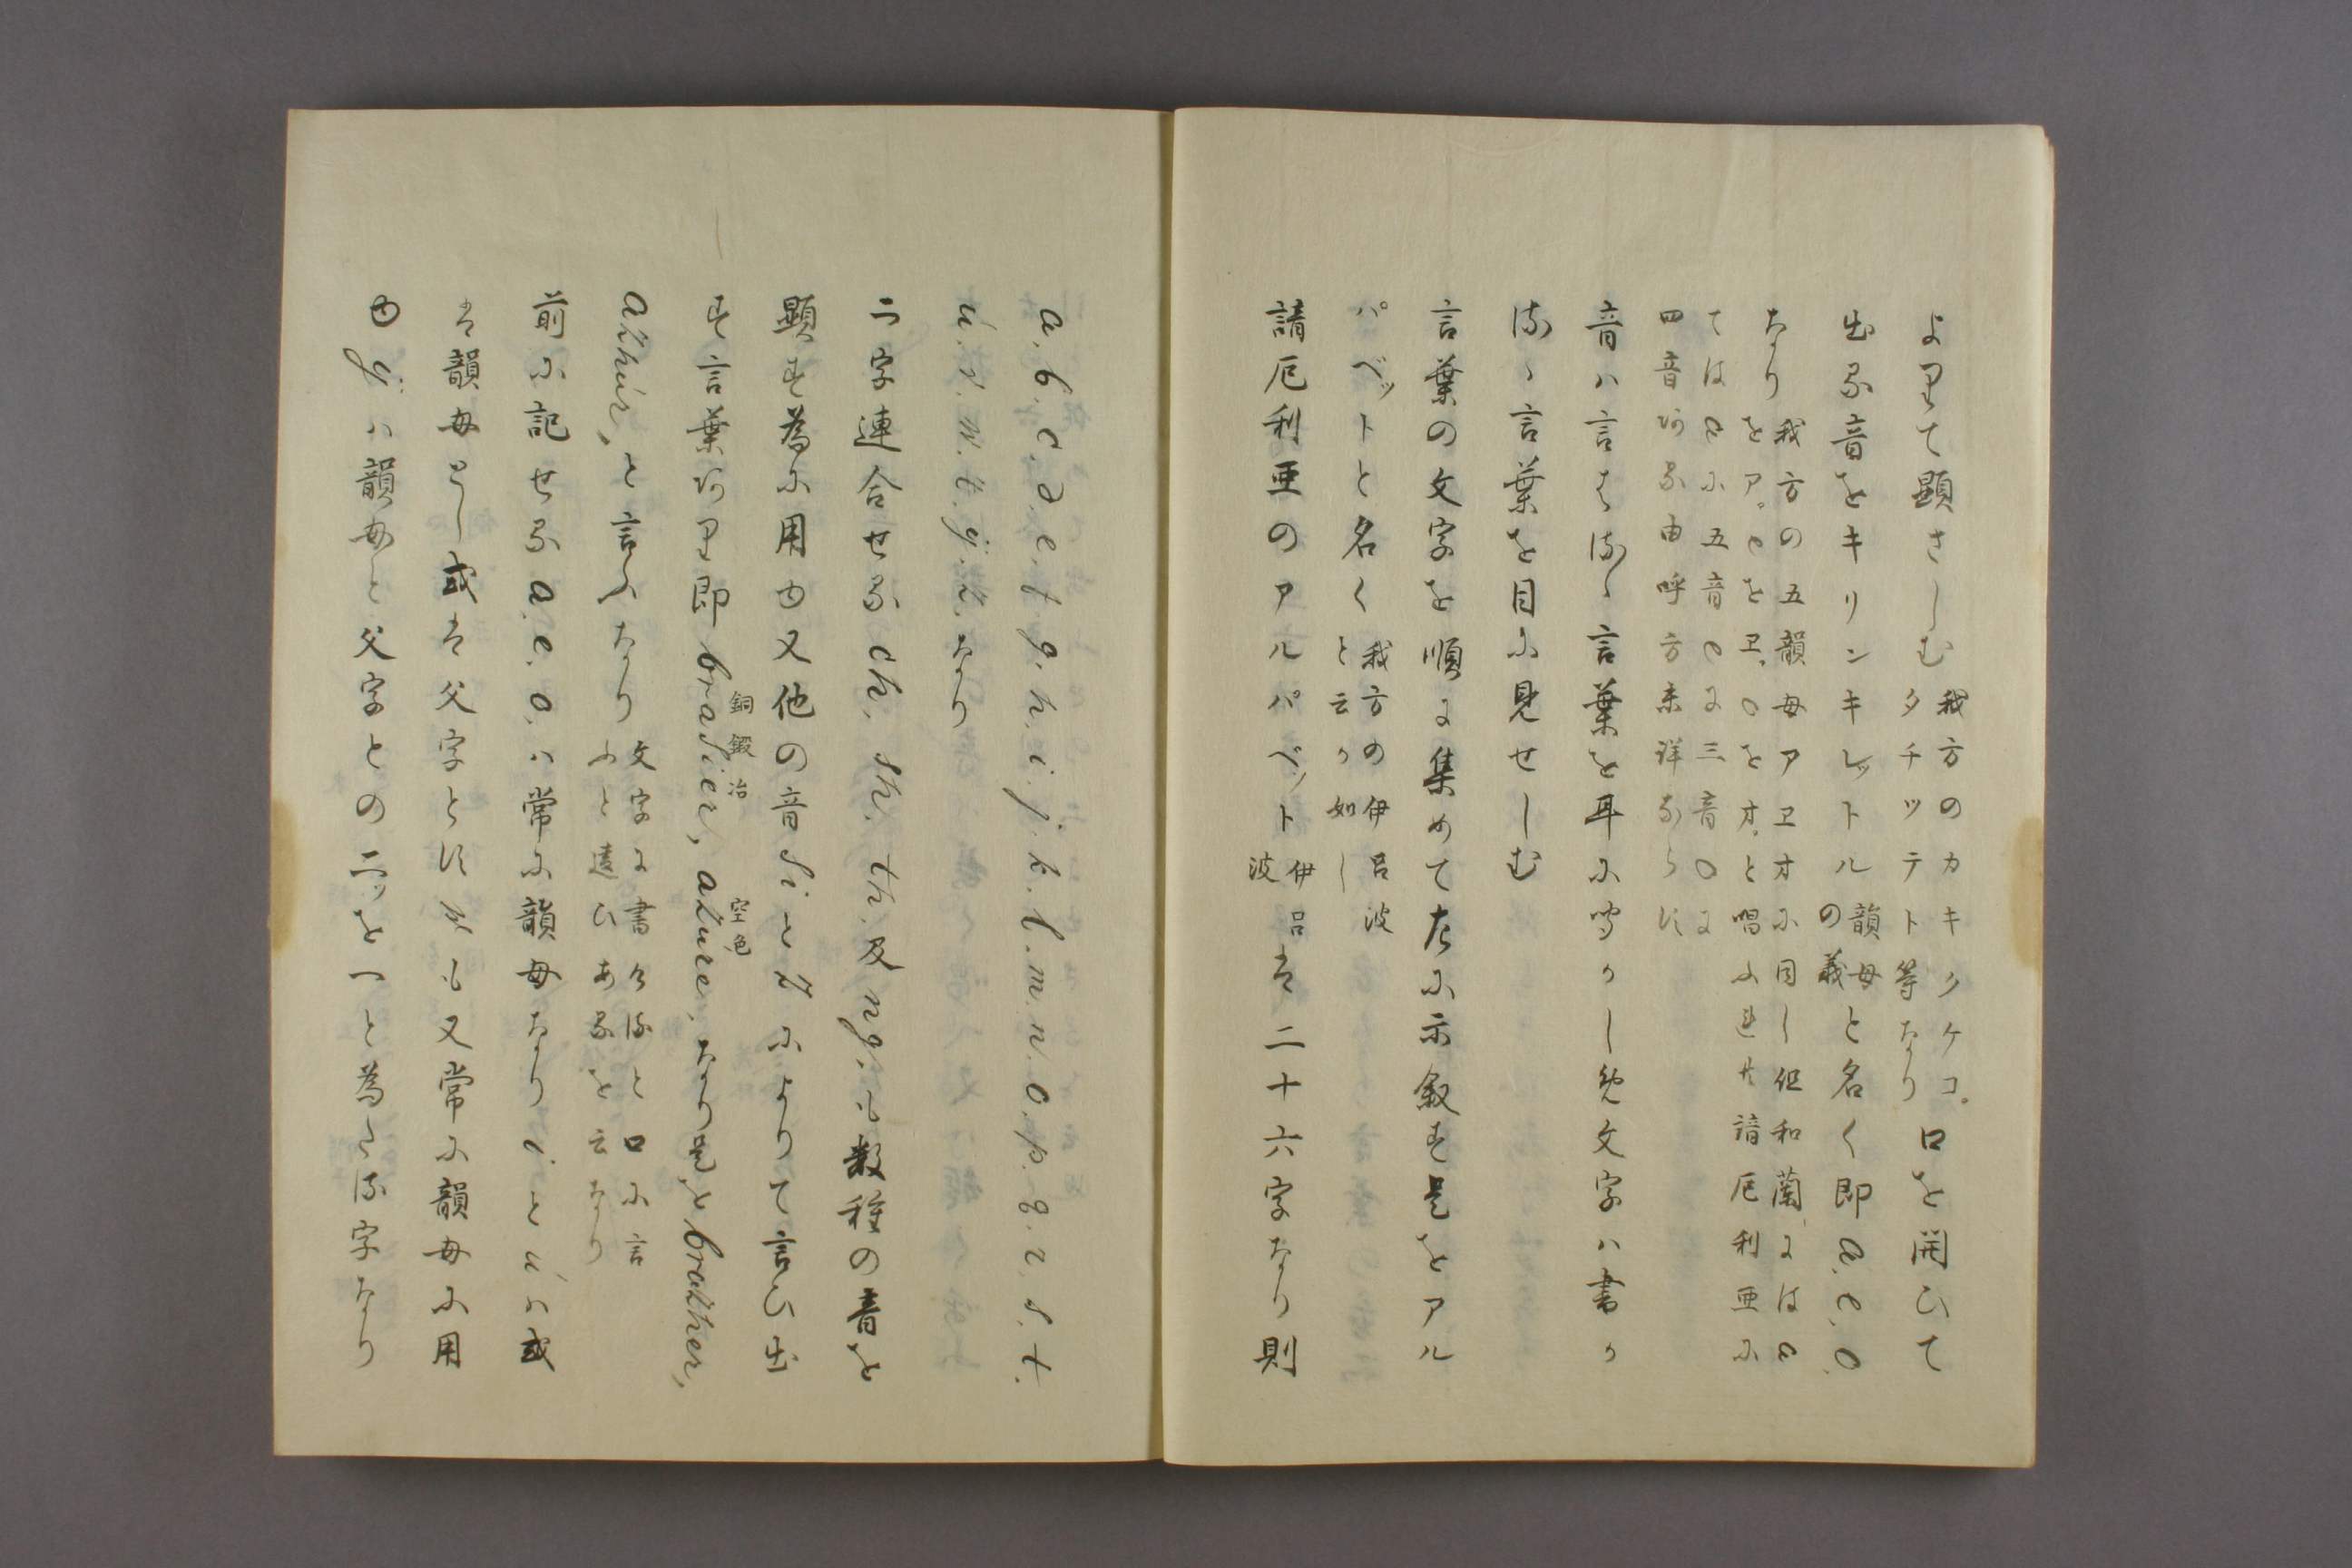 よりて顕さしむ 我方のカキクケコ。
タチツテト等なり 口を開ひて
出る音をキリンキレットル 韻母
の義 と名く即a.e.o.
なり 我方の五韻母アヱオに同し但和蘭にはa
をア。eをヱ。oをオ。と唱ふれ共諳厄利亜に
てはaに五音eに三音oに
四音ある由呼方未詳ならす
音ハ言はる、言葉を耳に聞かしめ文字ハ書か
る、言葉を目に見せしむ
言葉の文字を順に集めて左に示叙す是をアル
パベットと名く 我方の伊呂波
と云か如し
諳厄利亜のアルパベット 伊呂
波 は二十六字なり則
a. b. c. d. e. f. g. h. i. j. k. l. m. n. o. p. q. r. s. t.
u. v. w. x. y. z. なり
二字連合せる ch. sh. th. 及 ng. も数種の音を
顕す為に用ゆ又他の音 si. と z. によりて言ひ出
す言葉あり即 brasier, 銅鍛冶 azure, 空色 なり是を brazher,
azhur, と言ふなり 文字に書けると口に言
ふと違ひあるを云なり
前に記せる a. e. o. ハ常に韻母なり i. と u. ハ或
は韻母とし或は父字とす y. も又常に韻母に用
ゆ h. ハ韻母と父字との二ッを一と為したる字なり